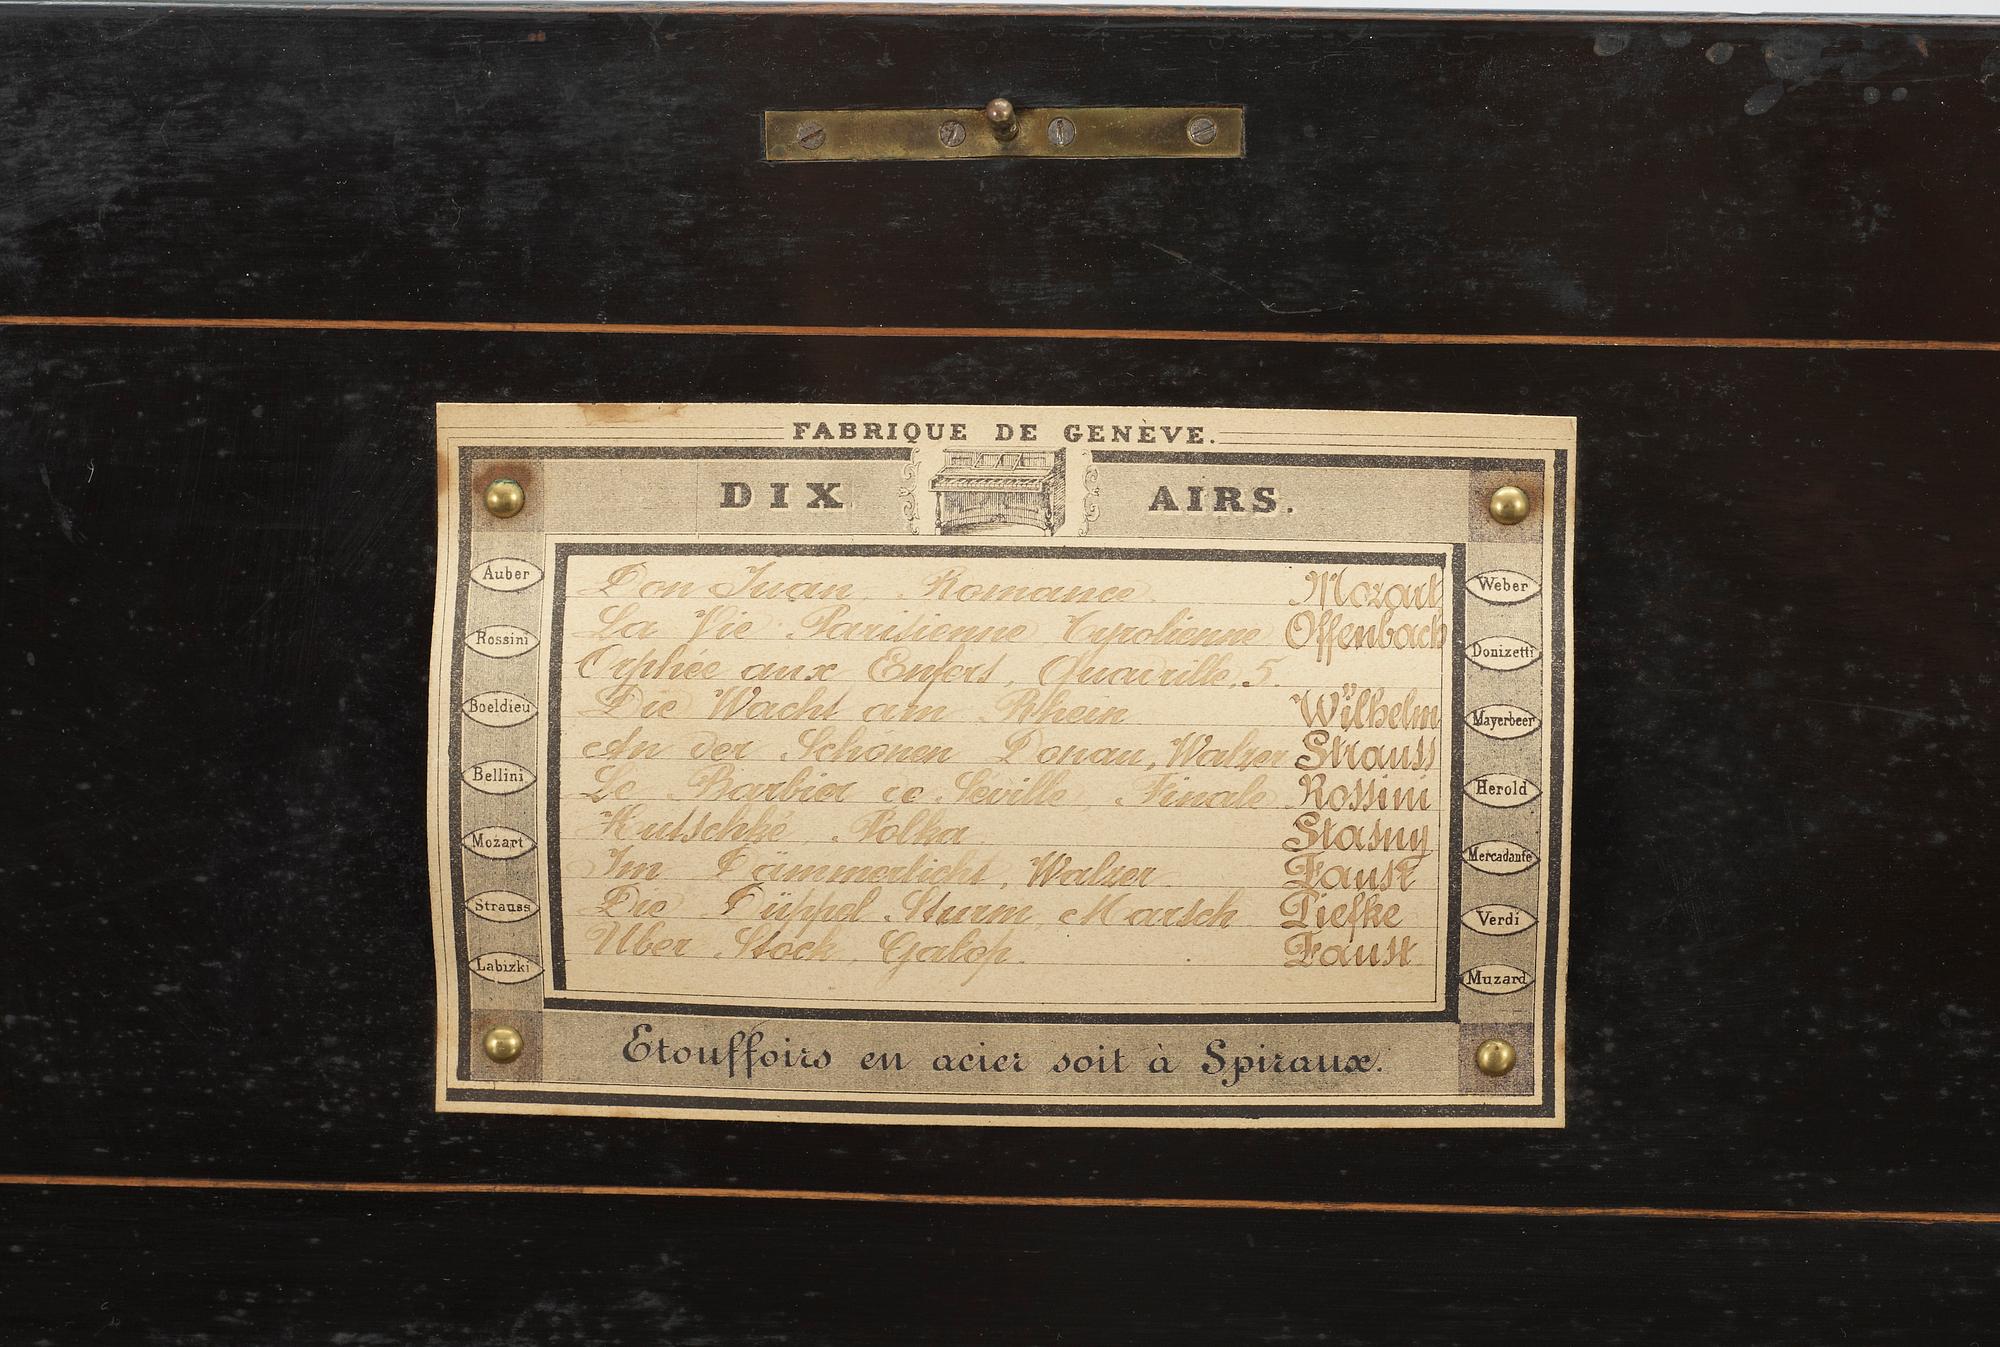 FABRIQUE DE GENÈVE.
DIX AIRS.
Auber
Rossini
Boeldieu
Bellini
Mozart
Strauss
Labizki
Don Juan, Romance. Mozart
La Vie Parisienne Tyrolienne Offenbach
Orphée aux Enfers, Quadrille, 5.
Die Wacht am Rhein Wilhelm
An der Schönen Donau, Walzer Strauss
Le Barbier de Séville Finale Rossini
Kutschké, Polka Stasny
Im Dämmerlicht, Walzer Faust
Die Düppel Sturm, Marsch Piefke
Uber Stock, Galop. Faust
Weber
Donizetti
Mayerbeer
Herold
Mercadante
Verdi
Muzard
Etouffoirs en acier soit à Spiraux.